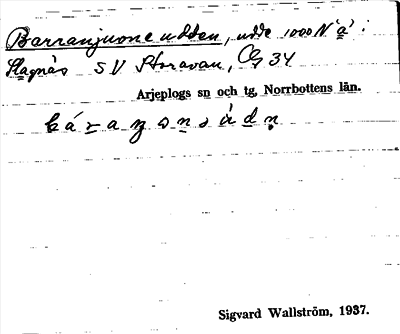 Barranjuone udden, udde 1000 N "a" i
Slagnäs SV Storavan, Cg 34
Arjeplogs sn och tg, Norrbottens län.
Sigvard Wallström, 1937.